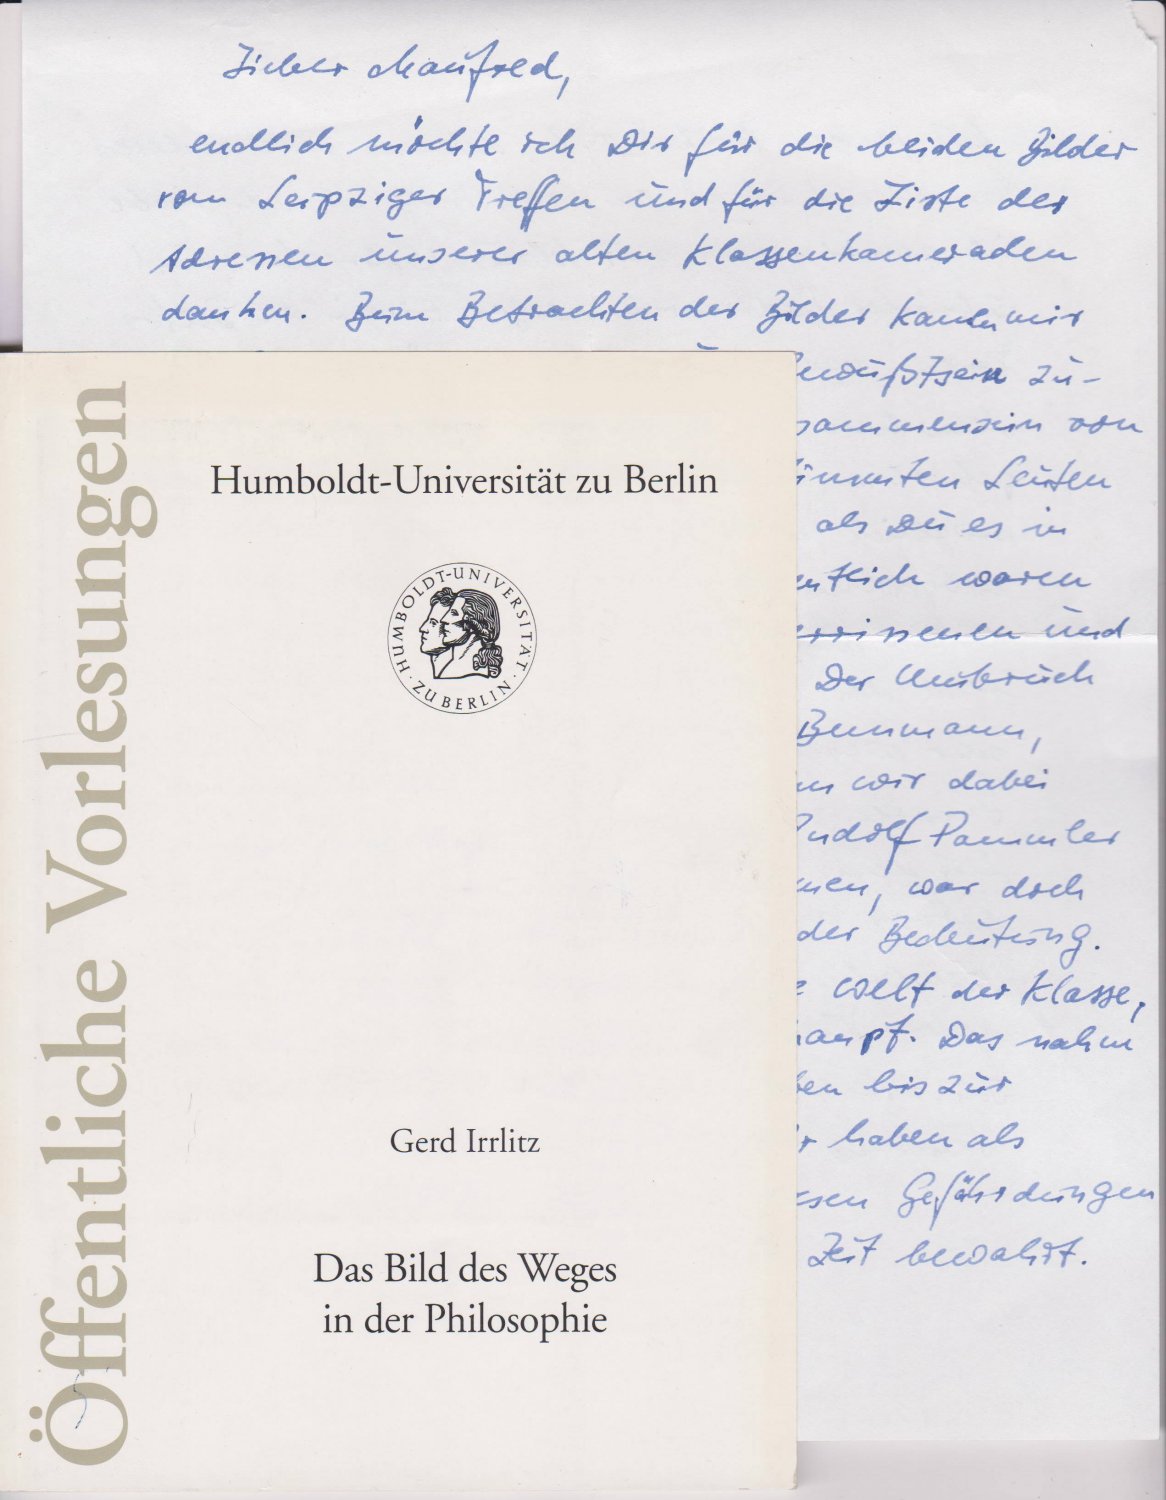 Lieber Manfred,
endlich möchte ich Dir für die beiden Bilder
vom Leipziger Treffen und für die Liste der
Adressen unserer alten Klassenkameraden
danken. Beim Betrachten der Bilder kam mir
wußtsein zu-
sammensein von
immten Leuten
als Du es in
ntlich waren
rrissenen und
Der
wir dabei
Rudolf Pammler
men, war doch
der Bedeutung.
Welt der Klasse,
haupt. Das nahm
ben bis zur
haben als
sen Gefährdungen
Zeit bewahrt.
Öffentliche Vorlesungen
Humboldt-Universität zu Berlin
HUMBOLDT-UNIVERSITÄT · ZU BERLIN ·
Gerd Irrlitz
Das Bild des Weges
in der Philosophie